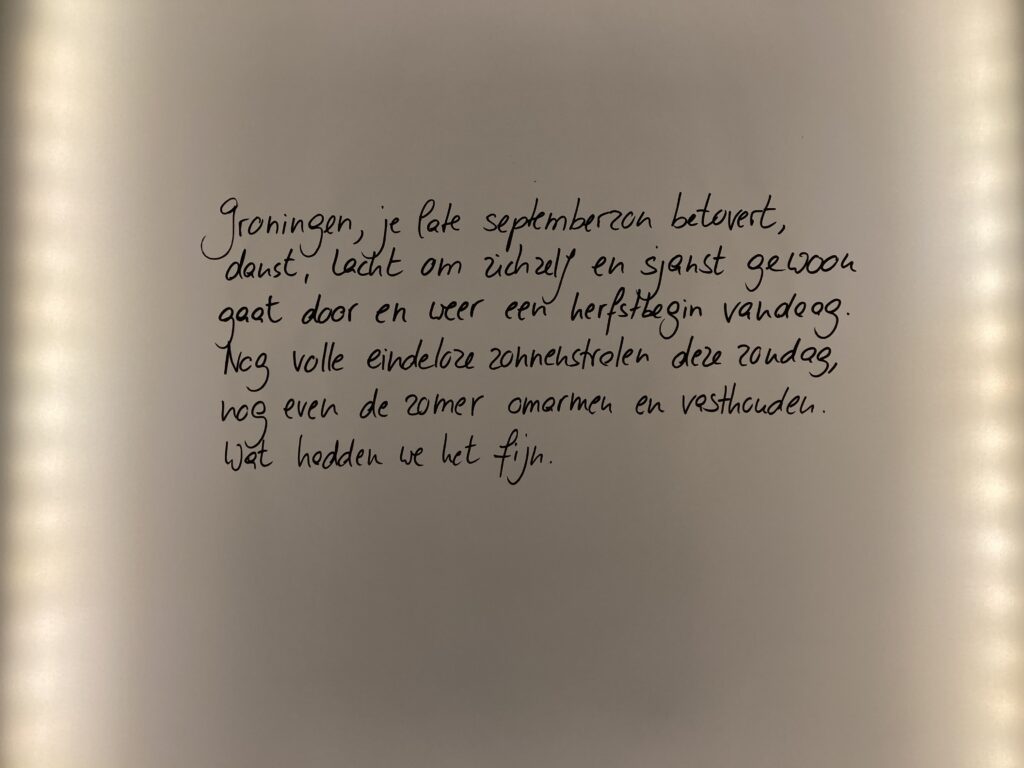 Groningen, je late septemberzon betovert,
danst, lacht om zichzelf en sjanst gewoon
gaat door en weer een herfstbegin vandaag.
Nog volle eindeloze zonnenstralen deze zondag,
nog even de zomer omarmen en vasthouden.
Wat hadden we het fijn.